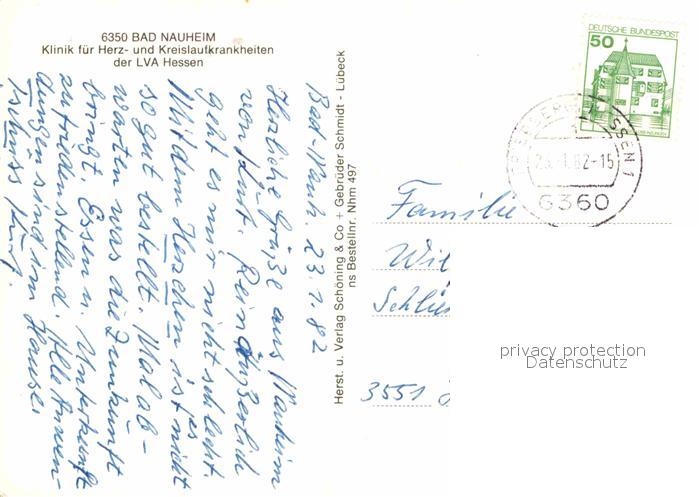 6350 BAD NAUHEIM
Klinik für Herz- und Kreislaufkrankheiten
der LVA Hessen
Bad-Nauh. 23.1.82
Herzliche Grüße aus Nauheim
von Kurt. Rein äußerlich
geht es mir nicht schlecht.
Mit dem Herzchen ist es nicht
so gut bestellt. Mal ab-
warten was die Zukunft
bringt. Essen u. Unterkunft
zufriedenstellend. Alle Anwen-
dungen sind im Hause.
Tschüss Kurt.
Herst. u. Verlag Schöning & Co + Gebrüder Schmidt - Lübeck
ns Bestellnr. Nhm 497
DEUTSCHE BUNDESPOST
50
1.82-15
6360
Familie
Wil
Schlüs
3551
privacy protection
Datenschutz